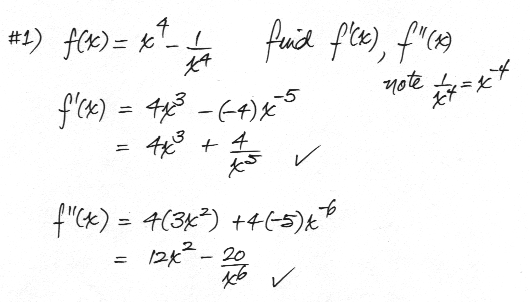 #1) f(x) = x⁴ - 1/x⁴ find f'(x), f"(x)
note 1/x⁴ = x⁻⁴
f'(x) = 4x³ - (-4)x⁻⁵
= 4x³ + 4/x⁵ ✓
f"(x) = 4(3x²) + 4(-5)x⁻⁶
= 12x² - 20/x⁶ ✓